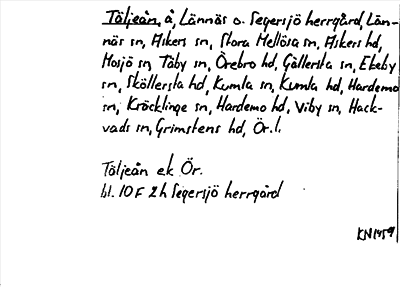 Täljeån, å, Lännäs o. Segersjö herrgård, Län-
näs sn, Askers sn, Stora Mellösa sn, Askers hd,
Mosjö sn, Täby sn, Örebro hd, Gällersta sn, Ekeby
sn, Sköllersta hd, Kumla sn, Kumla hd, Hardemo
sn, Kräcklinge sn, Hardemo hd, Viby sn, Hack-
vads sn, Grimstens hd, Ör. l.
Täljeån ek Ör.
bl. 10 F 2h Segersjö herrgård
KN1959